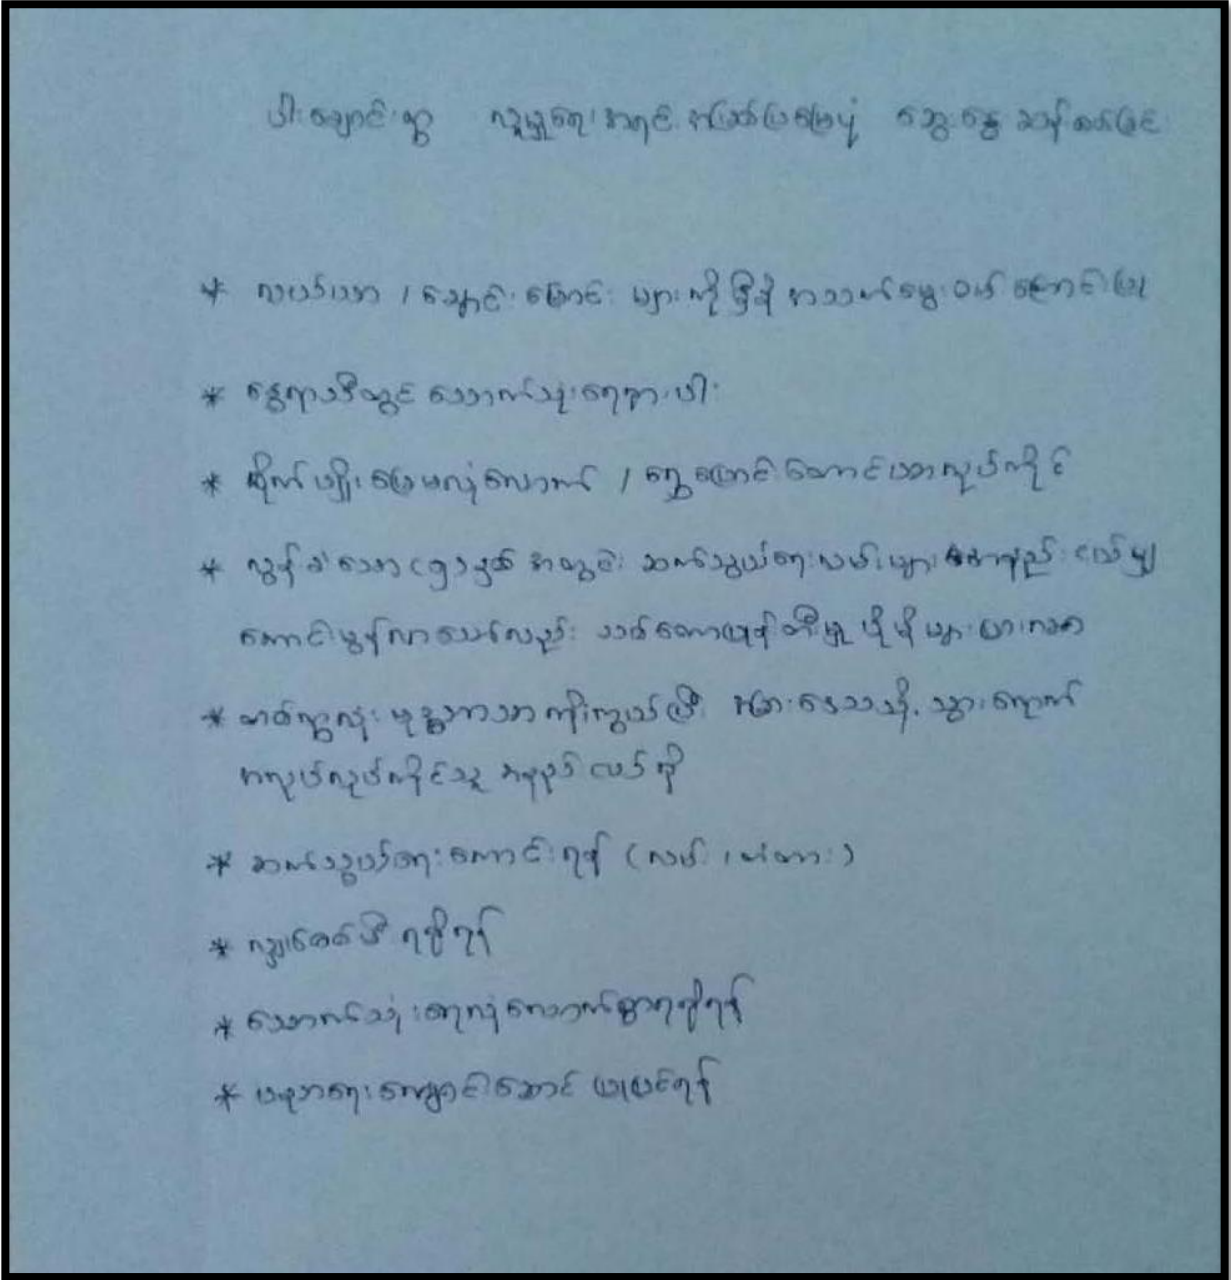 ဝါးချောင်းရွာ လူမှုရေးအရင်းအမြစ်ပြမြေပုံ ဆွေးနွေးဆန်းစစ်ခြင်း
* လယ်ယာ / ချောင်းမြောင်းများကိုမှီ၍ အသက်မွေးဝမ်းကျောင်းပြု
* နွေရာသီတွင် သောက်သုံးရေရှားပါး
* စိုက်ပျိုးမြေမလုံလောက် / ရွှေ့ပြောင်းတောင်ယာလုပ်ကိုင်
* လွန်ခဲ့သော (၅) နှစ်အတွင်း ဆက်သွယ်ရေးလမ်းများ အနည်းငယ်မျှ
ကောင်းမွန်လာသော်လည်း သစ်တောပြုန်းတီးမှု ပိုမိုများပြားလာ
* တစ်ရွာလုံး ဗုဒ္ဓဘာသာကိုးကွယ်ပြီး အခြားဒေသသို့ သွားရောက်
အလုပ်လုပ်ကိုင်သူ အနည်းငယ်ရှိ
* ဆက်သွယ်ရေးကောင်းရန် (လမ်း ၊ တံတား)
* လျှပ်စစ်မီး ရရှိရန်
* သောက်သုံးရေလုံလောက်စွာရရှိရန်
* ပညာရေးကျောင်းဆောင် ပြုပြင်ရန်